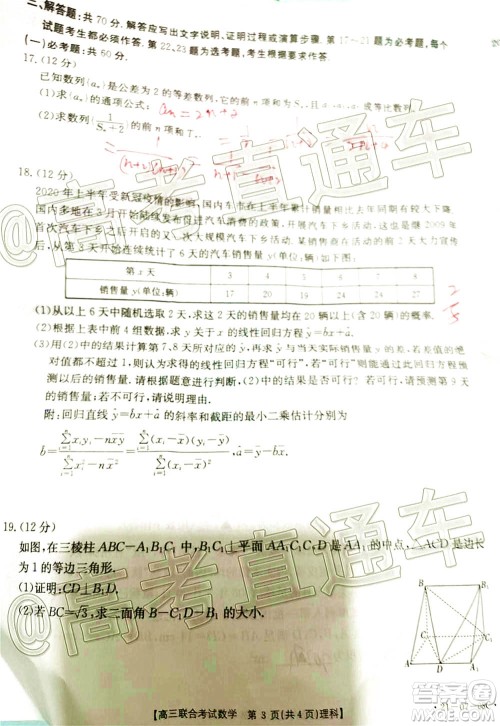 二、解答题：共 70 分．解答应写出文字说明、证明过程或演算步骤．第 17～21 题为必考题，每个
试题考生都必须作答．第 22、23 题为选考题，考生根据要求作答．
(一)必考题：共 60 分．
17.(12 分)
已知数列{aₙ}是公差为 2 的等差数列，它的前 n 项和为 Sₙ，
(1)求{aₙ}的通项公式；
(2)求数列{1/(Sₙ+2)}的前 n 项和
18.(12 分)
2020 年上半年受新冠疫情的影响，国内车市在上半年累计销量相比去年同期有较大下降．
国内多地在 3 月开始陆续发布促进汽车消费的政策，开展汽车下乡活动，这也是继 2009 年
首次汽车下乡之后开启的又一次大规模汽车下乡活动．某销售商在活动的前 2 天大力宣传
后，从第 3 天开始连续统计了 6 天的汽车销售量 y(单位：辆)如下图：
第 x 天 3 4 5 6 7 8
销售量 y(单位：辆) 17 20 19 24 24 27
(1)从以上 6 天中随机选取 2 天，求这 2 天的销售量均在 20 辆以上(含 20 辆)的概率．
(2)根据上表中前 4 组数据，求 y 关于 x 的线性回归方程 ŷ=b̂x+â．
(3)用(2)中的结果计算第 7、8 天所对应的 ŷ，再与当天实际销售量 y 的差，若差值的绝
对值都不超过 1，则认为求得的线性回归方程“可行”，若“可行”则能通过此回归方程预
测以后的销售量．请根据题意进行判断，(2)中的结果是否可行？若可行，请预测第 9 天
的销售量；若不可行，请说明理由．
附：回归直线 ŷ=b̂x+â 的斜率和截距的最小二乘估计分别为
19.(12 分)
如图，在三棱柱 ABC－A₁B₁C₁ 中，B₁C₁⊥平面 AA₁C₁C，D 是 AA₁ 的中点，△ACD 是边长
为 1 的等边三角形．
(1)证明：CD⊥B₁D．
(2)若 BC=√3，求二面角 B－C₁D－B₁ 的大小．
【高三联合考试数学 第 3 页(共 4 页)理科】
高考直通车
高考直通车